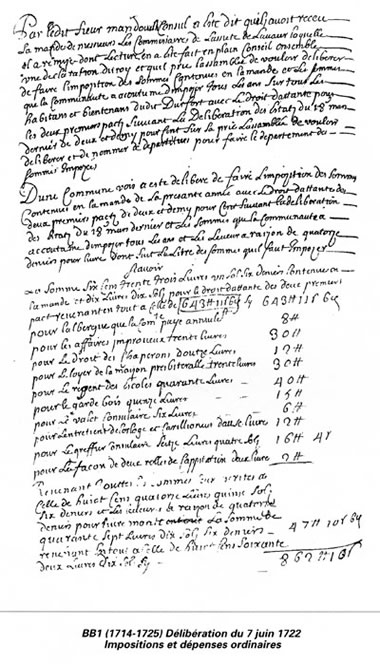 Par ledit Sieur mandoul Consul a este dit quil auoit receu
La mande de messieurs Les Commissaires de Lassiete de Lauaur laquelle
et a remise dont Lecture en a este fait en plain Conseil ensemble
du roy et quil prie lassamblee de vouloir deliberer
de faire Limposition des sommes Contenues en la mande et Les sommes
que la Communaute a acoutume dimposer tous Les ans sur tous Les
habitans et bientenans dudit Durfort avec Le droit dattante pour
les deux premiers pacts suivant La Deliberation des Estats du 18 mars
dernier de deux et demy pour Cent Sur La prie Lassamblee de vouloir
deliberer et de nommer de departiteurs pour faire le departement des
sommes Imposees
Dune Commune voix a este delibere de faire Limposition des sommes
Contenues en la mande de La presante année avec Le Droit dattante des
deux premiers pacts de deux et demy pour Cent suivant La deliberation
des Estats du 18 mars dernier et Les sommes que la Communaute a
accoutume dimposer tous Les ans et Les Lieueur a raison de quatorze
deniers pour livre Dont suit La Litre des sommes quil faut Imposer
Scavoir
La somme Six Cens trente trois Livres un sol six deniers Contenues en
la mande et dix Livres dix sols pour le droit dattante des deux premiers
pacts revenant tout a Celle de 643# 11s 6d 643# 11s 6d
pour lalbergue que la Comte paye annuelt 8#
pour les affaires impreveux trente livres 30#
pour Le Droit des Chaperons doutze Livres 12#
pour Le Loyer de la maison presbiteralle trente livres 30#
pour Le regent des escoles quarante Livres 40#
pour le garde bois quinze Livres 15#
pour Le valet Consulaire six Livres 6#
pour Lentretient de lorloge et carillioneur doutse livre 12#
pour Le greffier Consulaire Seitze Livres quatre sols 16# 4s
pour La façon de deux rolles de Capitation deux livre 2#
Revenant toutes Les sommes
Celle de huict Cens quatorze Livres quinze sols
six deniers et Les Lieueurs a raison de quatorze
deniers pour livre monte La somme de
quarante sept Livres dix sols six deniers 47# 10s 6d
revenant Le tous a Celle de huict Cens soixante
deux Livres six sols 862# 6s
BB1 (1714-1725) Délibération du 7 juin 1722
Impositions et dépenses ordinaires